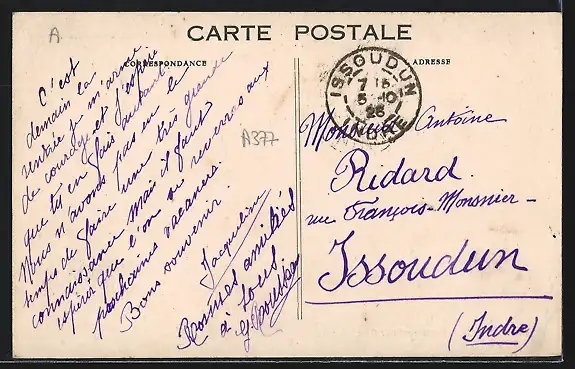 A
CARTE POSTALE
CORRESPONDANCE
ADRESSE
C'est
demain la
rentrée je m'arme
de courage et j'espère
que tu en fais autant
Nous n'avons pas eu le
temps de faire une très grande
connaissance mais il faut
espérer que l'on se reverra aux
prochaines vacances.
Bons souvenirs.
Jacqueline
Bonnes amitiés
à tous
A377
ISSOUDUN
7 15
5-10
26
INDRE
Monsieur Antoine
Ridard
rue François-Monsnier-
Issoudun
(Indre)